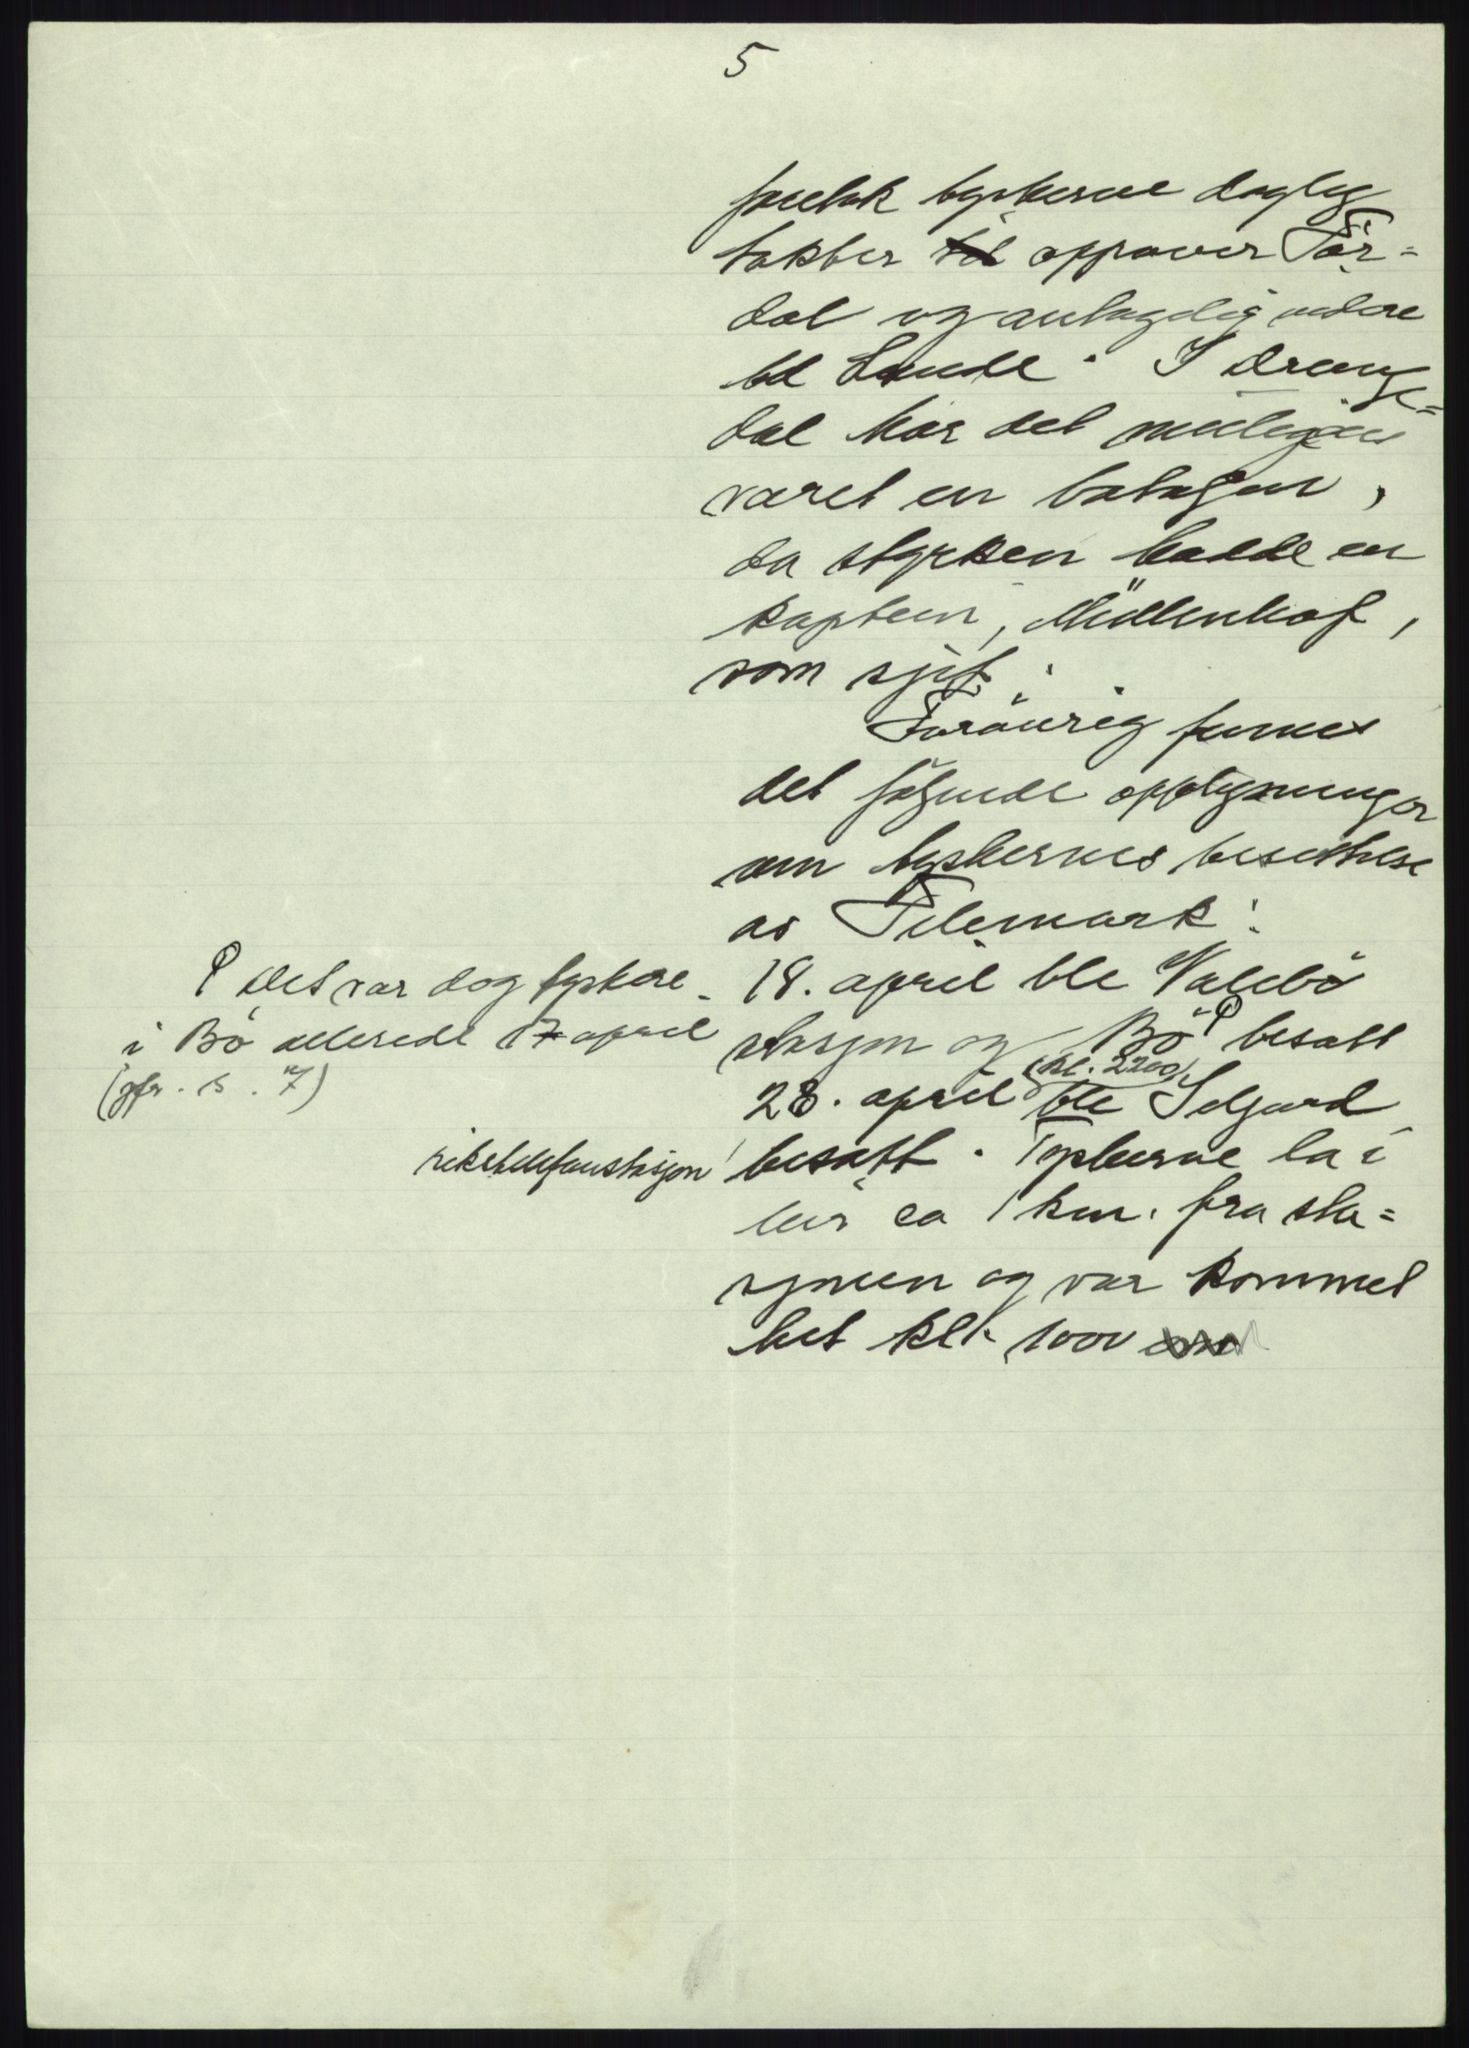 5
foretok tyskerne daglig
tokter til oppover Tör=
dal og antagelig videre
til Lunde. I Drange=
dal har det muligens
været en bataljon,
da styrken hadde en
kaptein, Müllenhof,
som sjef.
Forövrig finnes
det følgende opplysninger
om tyskernes besettelse
av Telemark:
18. april ble Valebö
stasjon og Bö besatt
28. april (kl. 2200) ble Seljord
rikstelefonstasjon besatt. Tyskerne la i
leir ca 1 km. fra sta=
sjonen og var kommet
het kl. 1000
det var dog tyskere
i Bö allerede 17 april
(jfr. s. 7)